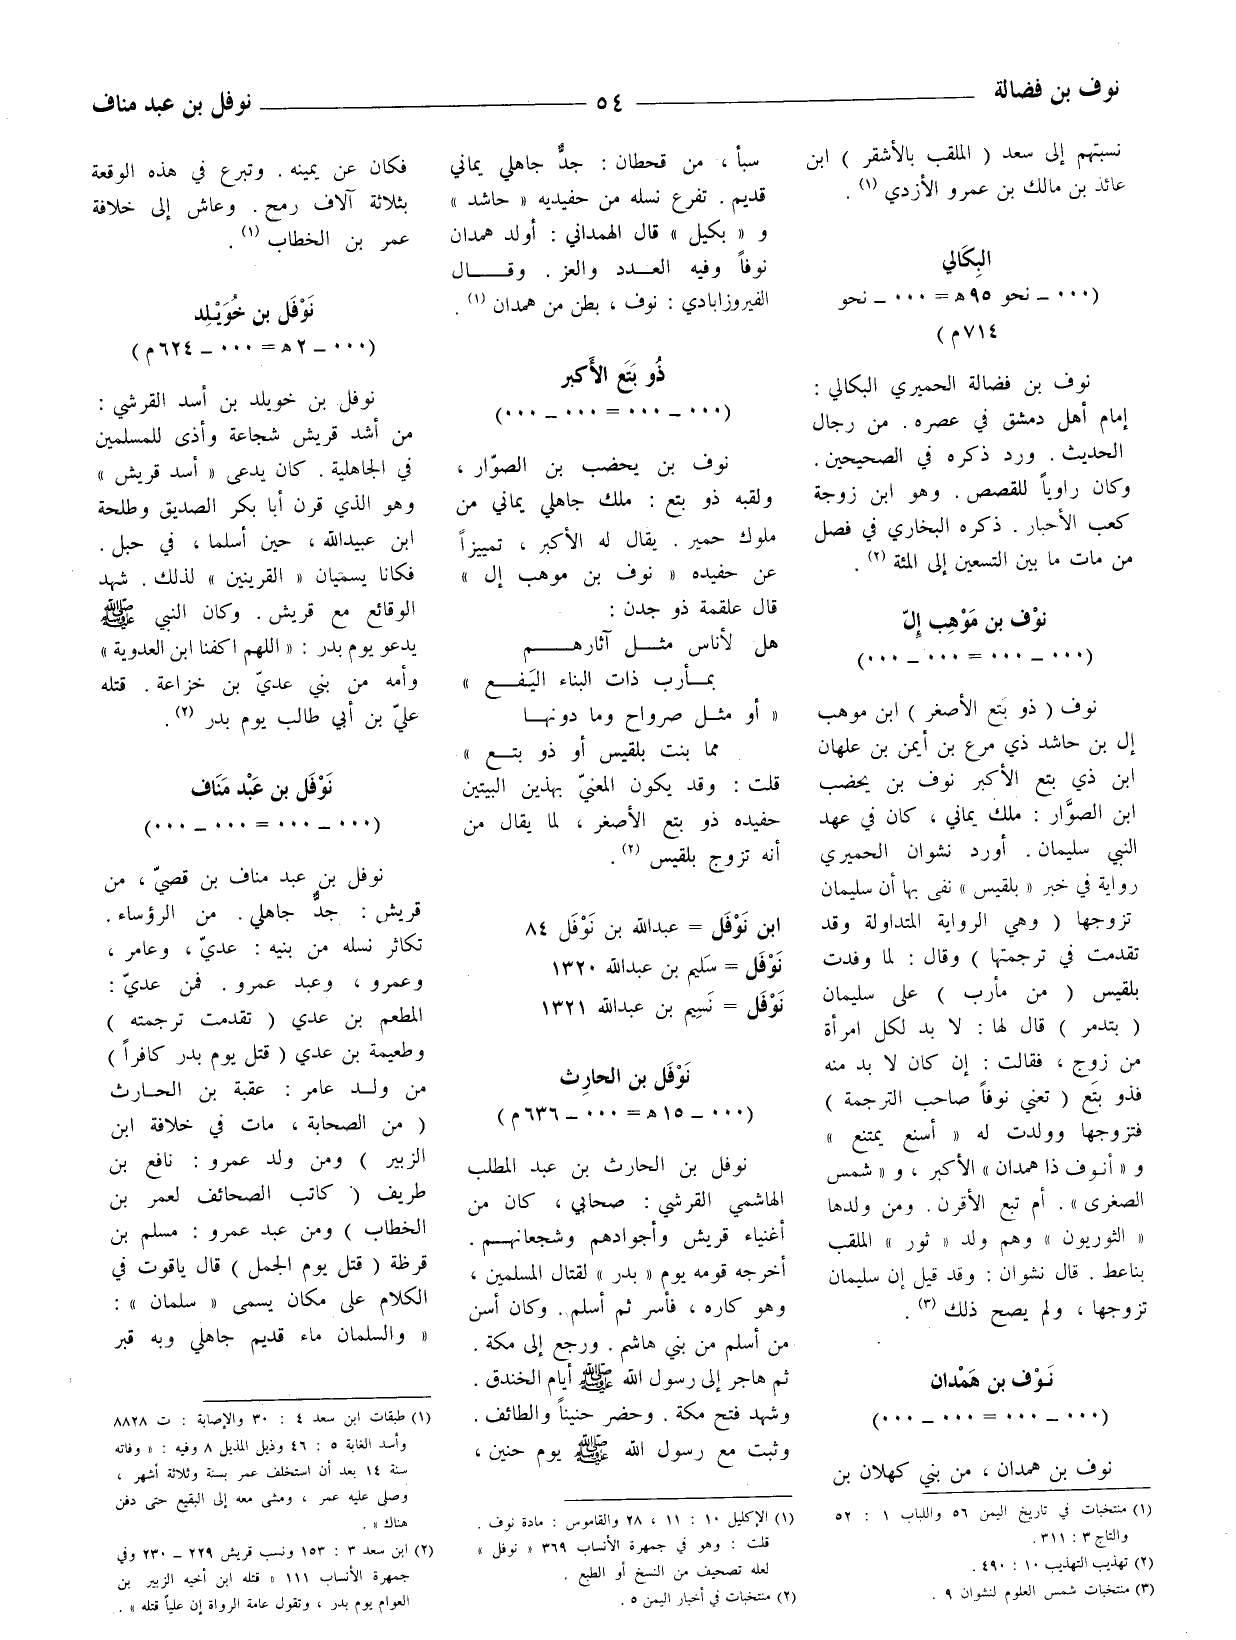 نوف بن فضالة
٥٤
نوفل بن عبد مناف
نسبتهم إلى سعد ( الملقب بالأشقر ) ابن
عائذ بن مالك بن عمرو الأزدي (١) .
البِكَالي
(٠٠٠ ـ نحو ٩٥ هـ = ٠٠٠ ـ نحو
٧١٤ م)
نوف بن فضالة الحميري البكالي :
إمام أهل دمشق في عصره . من رجال
الحديث . ورد ذكره في الصحيحين .
وكان راوياً للقصص . وهو ابن زوجة
كعب الأحبار . ذكره البخاري في فصل
من مات ما بين التسعين إلى المئة (٢) .
نوْف بن مَوْهِب إلّ
(٠٠٠ ـ ٠٠٠ = ٠٠٠ ـ ٠٠٠)
نوف ( ذو بَتَع الأصغر ) ابن موهب
إل بن حاشد ذي مرع بن أيمن بن علهان
ابن ذي بتع الأكبر نوف بن يحضب
ابن الصوَّار : ملك يماني ، كان في عهد
النبي سليمان . أورد نشوان الحميري
رواية في خبر « بلقيس » نفى بها أن سليمان
تزوجها ( وهي الرواية المتداولة وقد
تقدمت في ترجمتها ) وقال : لما وفدت
بلقيس ( من مأرب ) على سليمان
( بتدمر ) قال لها : لا بد لكل امرأة
من زوج ، فقالت : إن كان لا بد منه
فذو بتَع ( تعني نوفاً صاحب الترجمة )
فتزوجها وولدت له « أسنع يمتنع »
و « أنوف ذا همدان » الأكبر ، و « شمس
الصغرى » . أم تبع الأقرن . ومن ولدها
« الثوريون » وهم ولد « ثور » الملقب
بناعط . قال نشوان : وقد قيل إن سليمان
تزوجها ، ولم يصح ذلك (٣) .
نَوْف بن هَمْدان
(٠٠٠ ـ ٠٠٠ = ٠٠٠ ـ ٠٠٠)
نوف بن همدان ، من بني كهلان بن
(١) منتخبات في تاريخ اليمن ٥٦ واللباب ١ : ٥٢
والتاج ٣ : ٣١١ .
(٢) تهذيب التهذيب ١٠ : ٤٩٠ .
(٣) منتخبات شمس العلوم لنشوان ٩ .
سبأ ، من قحطان : جدٌّ جاهلي يماني
قديم . تفرع نسله من حفيديه « حاشد »
و « بكيل » قال الهمداني : أولد همدان
نوفاً وفيه العدد والعز . وقال
الفيروزابادي : نوف ، بطن من همدان (١) .
ذُو بَتَع الأَكبر
(٠٠٠ ـ ٠٠٠ = ٠٠٠ ـ ٠٠٠)
نوف بن يحضب بن الصوّار ،
ولقبه ذو بتع : ملك جاهلي يماني من
ملوك حمير . يقال له الأكبر ، تمييزاً
عن حفيده « نوف بن موهب إل »
قال علقمة ذو جدن :
هل لأناس مثل آثارهم
بمأرب ذات البناء اليَفع »
« أو مثل صرواح وما دونها
مما بنت بلقيس أو ذو بتع »
قلت : وقد يكون المعنيّ بهذين البيتين
حفيده ذو بتع الأصغر ، لما يقال من
أنه تزوج بلقيس (٢) .
ابن نَوْفَل = عبدالله بن نَوْفَل ٨٤
نَوْفَل = سَليم بن عبدالله ١٣٢٠
نَوْفَل = نَسِيم بن عبدالله ١٣٢١
نَوْفَل بن الحارِث
(٠٠٠ ـ ١٥ هـ = ٠٠٠ ـ ٦٣٦ م)
نوفل بن الحارث بن عبد المطلب
الهاشمي القرشي : صحابي ، كان من
أغنياء قريش وأجوادهم وشجعانهم .
أخرجه قومه يوم « بدر » لقتال المسلمين ،
وهو كاره ، فأسر ثم أسلم . وكان أسن
من أسلم من بني هاشم . ورجع إلى مكة .
ثم هاجر إلى رسول الله ﷺ أيام الخندق .
وشهد فتح مكة . وحضر حنيناً والطائف .
وثبت مع رسول الله ﷺ يوم حنين ،
(١) الإكليل ١٠ : ١١ ، ٢٨ والقاموس : مادة نوف .
قلت : وهو في جمهرة الأنساب ٣٦٩ « نوفل »
لعله تصحيف من النسخ أو الطبع .
(٢) منتخبات في أخبار اليمن ٥ .
فكان عن يمينه . وتبرع في هذه الوقعة
بثلاثة آلاف رمح . وعاش إلى خلافة
عمر بن الخطاب (١) .
نَوْفَل بن خُوَيْلِد
(٠٠٠ ـ ٢ هـ = ٠٠٠ ـ ٦٢٤ م)
نوفل بن خويلد بن أسد القرشي :
من أشد قريش شجاعة وأذى للمسلمين
في الجاهلية . كان يدعى « أسد قريش »
وهو الذي قرن أبا بكر الصديق وطلحة
ابن عبيدالله ، حين أسلما ، في حبل .
فكانا يسميان « القرينين » لذلك . شهد
الوقائع مع قريش . وكان النبي ﷺ
يدعو يوم بدر : « اللهم اكفنا ابن العدوية »
وأمه من بني عديّ بن خزاعة . قتله
عليّ بن أبي طالب يوم بدر (٢) .
نَوْفَل بن عَبْد مَنَاف
(٠٠٠ ـ ٠٠٠ = ٠٠٠ ـ ٠٠٠)
نوفل بن عبد مناف بن قصيّ ، من
قريش : جدٌّ جاهلي . من الرؤساء .
تكاثر نسله من بنيه : عديّ ، وعامر ،
وعمرو ، وعبد عمرو . فمن عديّ :
المطعم بن عدي ( تقدمت ترجمته )
وطعيمة بن عدي ( قتل يوم بدر كافراً )
من ولد عامر : عقبة بن الحارث
( من الصحابة ، مات في خلافة ابن
الزبير ) ومن ولد عمرو : نافع بن
طريف ( كاتب الصحائف لعمر بن
الخطاب ) ومن عبد عمرو : مسلم بن
قرظة ( قتل يوم الجمل ) قال ياقوت في
الكلام على مكان يسمى « سلمان » :
« والسلمان ماء قديم جاهلي وبه قبر
(١) طبقات ابن سعد ٤ : ٣٠ والإصابة : ت ٨٨٢٨
وأسد الغابة ٥ : ٤٦ وذيل المذيل ٨ وفيه : « وفاته
سنة ١٤ بعد أن استخلف عمر بسنة وثلاثة أشهر ،
وصلى عليه عمر ، ومشى معه إلى البقيع حتى دفن
هناك » .
(٢) ابن سعد ٣ : ١٥٣ ونسب قريش ٢٢٩ ـ ٢٣٠ وفي
جمهرة الأنساب ١١١ « قتله ابن أخيه الزبير بن
العوام يوم بدر ، وتقول عامة الرواة إن علياً قتله » .